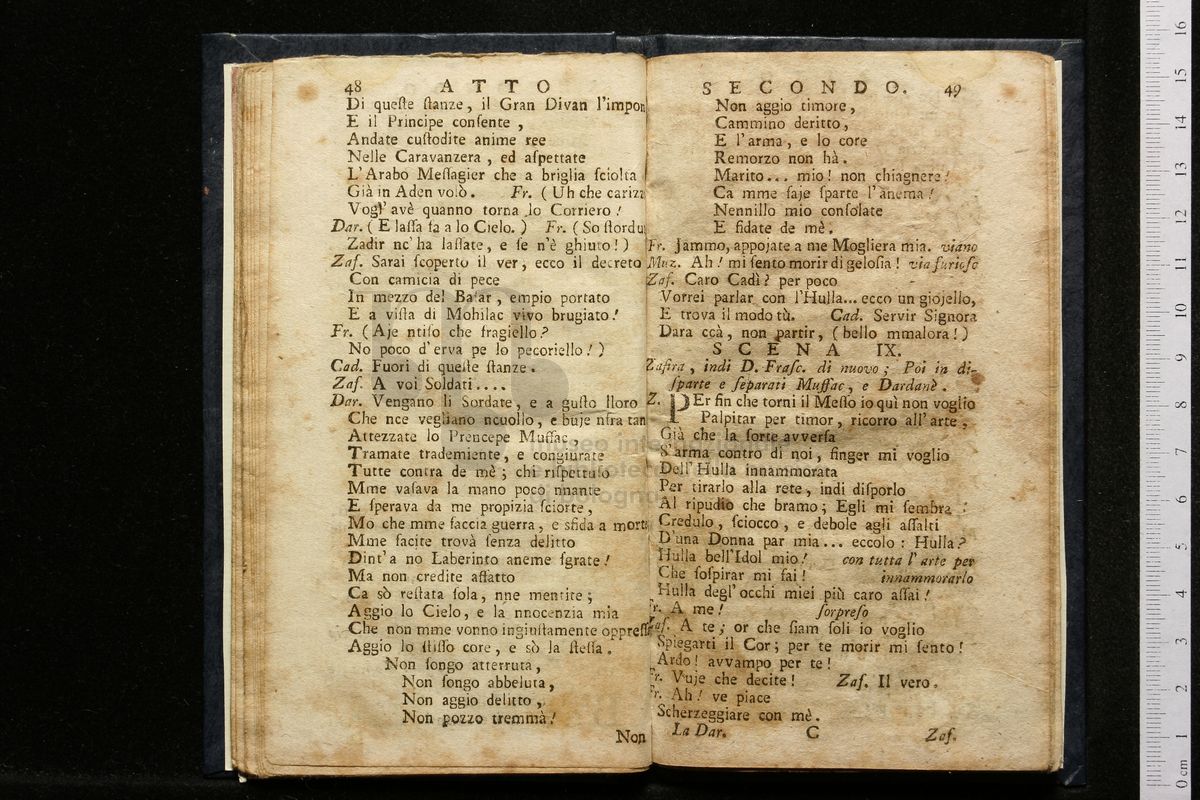 48 ATTO
Di queſte ſtanze, il Gran Divan l'impon
E il Principe conſente,
Andate cuſtodite anime ree
Nelle Caravanzera, ed aſpettate
L'Arabo Meſſagier che a briglia ſciolta
Già in Aden volò. Fr. (Uh che carizz
Vogl' avè quanno torna lo Corriero!
Dar. (E laſſa fa a lo Cielo.) Fr. (So ſtordu
Zadir nc'ha laſſate, e ſe n'è ghiuto!)
Zaf. Sarai ſcoperto il ver, ecco il decreto
Con camicia di pece
In mezzo del Baſar, empio portato
E a viſta di Mohilac vivo brugiato!
Fr. (Aje ntiſo che fragiello?
No poco d'erva pe lo pecoriello!)
Cad. Fuori di queſte ſtanze.
Zaf. A voi Soldati....
Dar. Vengano li Sordate, e a guſto lloro
Che nce vegliano ncuollo, e buje nfra tan
Attezzate lo Prencepe Muſſac,
Tramate trademiente, e congiurate
Tutte contra de mè; chi riſpettuſo
Mme vaſava la mano poco nnante
E ſperava da me propizia ſciorte,
Mo che mme faccia guerra, e sfida a morte
Mme facite trovà ſenza delitto
Dint'a no Laberinto aneme ſgrate!
Ma non credite affatto
Ca sò reſtata ſola, nne mentite;
Aggio lo Cielo, e la nnocenzia mia
Che non mme vonno ingiuſtamente oppreſſ
Aggio lo ſtiſſo core, e sò la ſteſſa.
Non ſongo atterruta,
Non ſongo abbeluta,
Non aggio delitto,
Non pozzo tremmà!
Non
SECONDO. 49
Non aggio timore,
Cammino deritto,
E l'arma, e lo core
Remorzo non hà.
Marito... mio! non chiagnere!
Ca mme faje ſparte l'anema!
Nennillo mio conſolate
E fidate de mè.
Fr. Jammo, appojate a me Mogliera mia. viano
Muz. Ah! mi ſento morir di geloſia! via furioſo
Zaf. Caro Cadì? per poco
Vorrei parlar con l'Hulla... ecco un giojello,
E trova il modo tù. Cad. Servir Signora
Dara ccà, non partir, (bello mmalora!)
SCENA IX.
Zafira, indi D. Fraſc. di nuovo; Poi in di-
ſparte e ſeparati Muſſac, e Dardanè.
Z. PEr fin che torni il Meſſo io quì non voglio
Palpitar per timor, ricorro all'arte,
Già che la ſorte avverſa
S'arma contro di noi, finger mi voglio
Dell'Hulla innammorata
Per tirarlo alla rete, indi diſporlo
Al ripudio che bramo; Egli mi ſembra
Credulo, ſciocco, e debole agli aſſalti
D'una Donna par mia... eccolo: Hulla?
Hulla bell'Idol mio! con tutta l'arte per
Che ſoſpirar mi fai! innammorarlo
Hulla degl'occhi miei più caro aſſai!
Fr. A me! ſorpreſo
Zaf. A te; or che ſiam ſoli io voglio
Spiegarti il Cor; per te morir mi ſento!
Ardo! avvampo per te!
Fr. Vuje che decite! Zaf. Il vero.
Fr. Ah! ve piace
Scherzeggiare con mè.
La Dar. C Zaf.